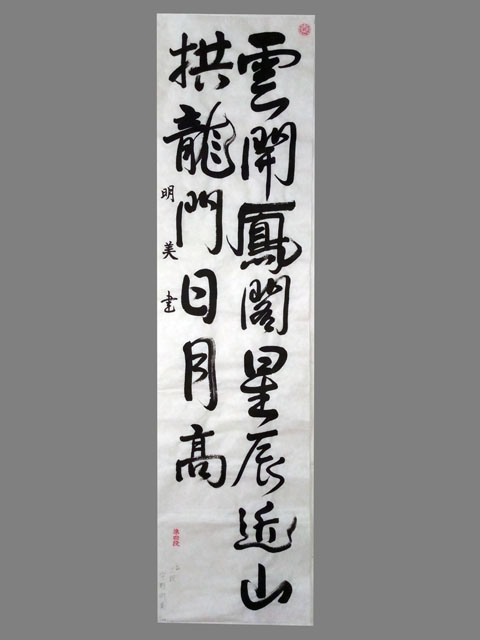 雲開鳳閣星辰近山
拱龍門日月高
明美書